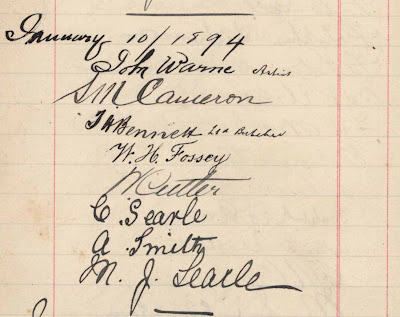 January 10/1894
John Warne Artist
S M Cameron
T H Bennett
W. H. Fossey
Cutler
C. Searle
A. Smith
M. J. Searle